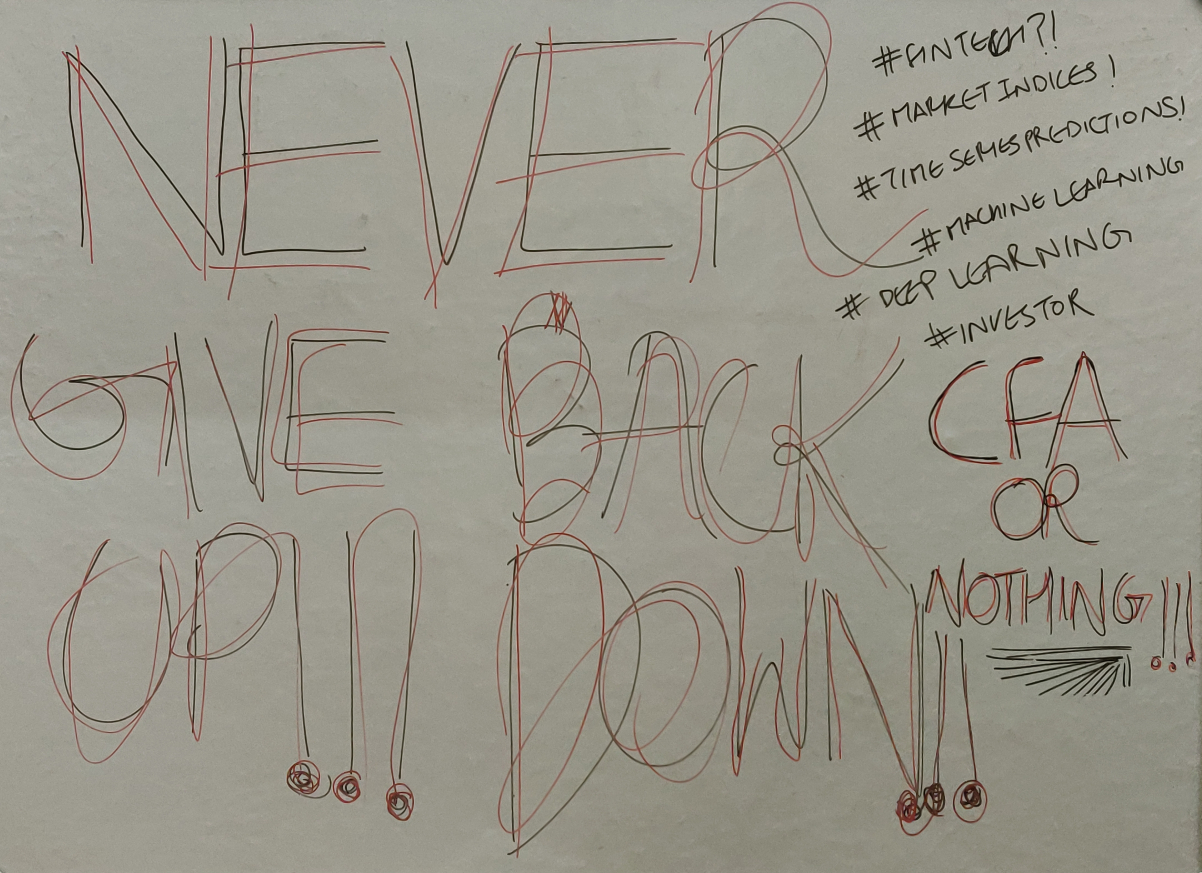 NEVER
GIVE BACK
UP!!! DOWN!!!
#FINTECH?!
#MARKET INDICES!
#TIME SERIES PREDICTIONS!
#MACHINE LEARNING
# DEEP LEARNING
#INVESTOR
CFA
OR
NOTHING!!!